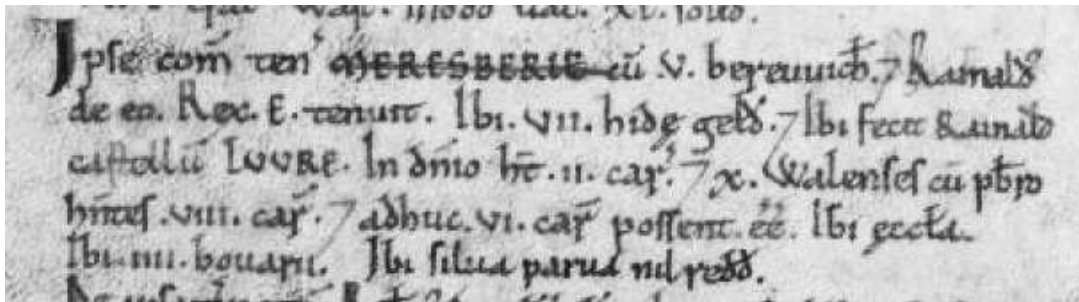 Ipse com̃ ten̉ MERESBERIE cū .V. bereuuich̃. ⁊ Rainald̃
de eo. Rex. E. tenuit. Ibi. VII. hidę geld̃. ⁊ Ibi fecit Rainald̃
castellū LUURE. In dñio hт̃ .II. car̃. ⁊ x. Walenses cū pb̃ro
hñtes .VIII. car̃. ⁊ adhuc. VI. car̃ possent. ẽẽ. Ibi ęccła.
Ibi. IIII. bouarii. Ibi silua parua nil redd̃.